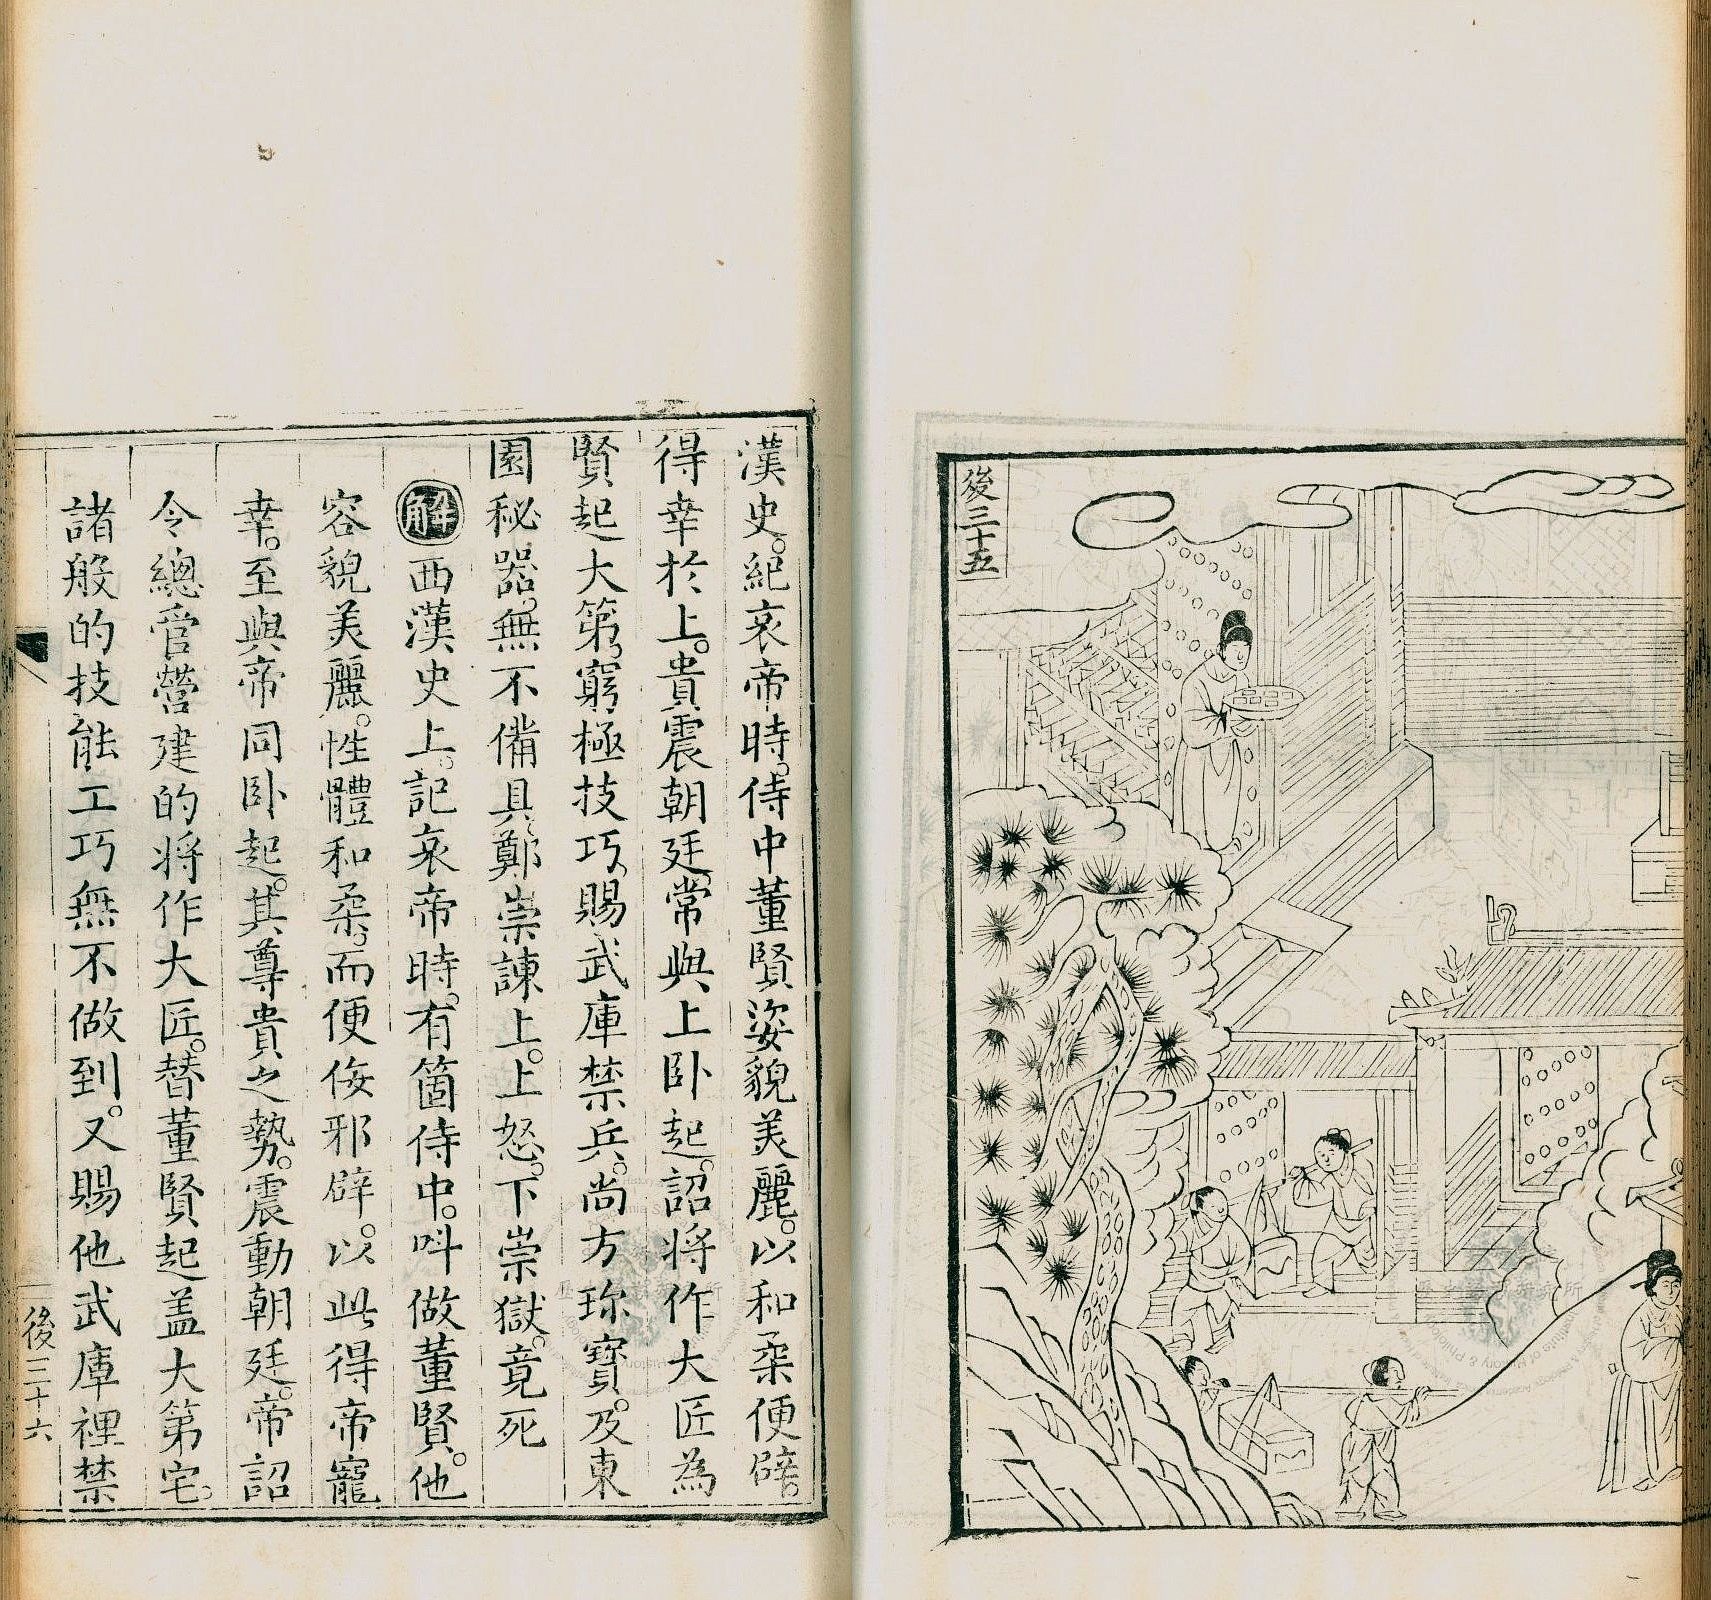 後三十五
漢史。紀哀帝時。侍中董賢姿貌美麗。以和柔便辟。
得幸於上。貴震朝廷。常與上卧起。詔將作大匠為
賢起大第。窮極技巧。賜武庫禁兵。尚方珎寶。及東
園秘器。無不備具。鄭崇諫上。上怒。下崇獄。竟死
解西漢史上。記哀帝時。有箇侍中。呌做董賢。他
容貌美麗。性體和柔。而便佞邪辟。以此得帝寵
幸。至與帝同卧起。其尊貴之勢。震動朝廷。帝詔
令總管營建的將作大匠。替董賢起盖大第宅。
諸般的技能工巧無不做到。又賜他武庫裡禁
後三十六